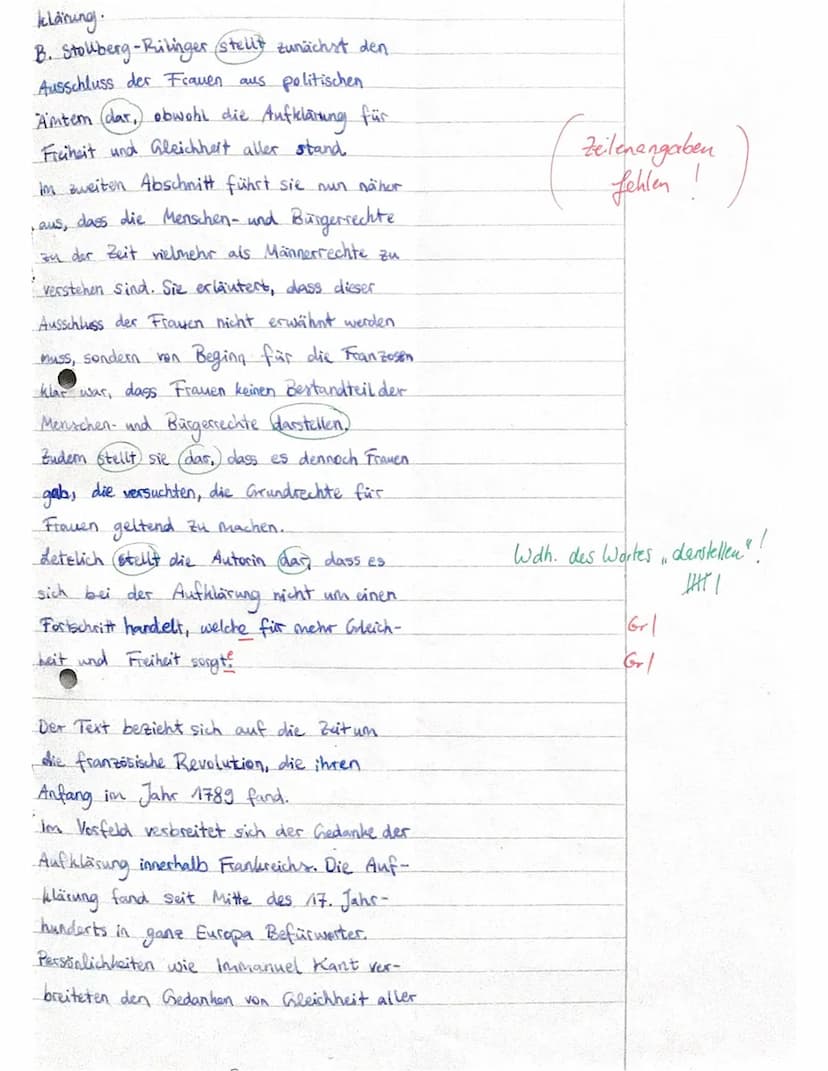 klärung.
B. Stollberg-Rilinger stellt zunächst den
Ausschluss der Frauen aus politischen
Ämtern dar, obwohl die Aufklärung für
Freiheit und Gleichheit aller stand.
Im zweiten Abschnitt führt sie nun näher
aus, dass die Menschen- und Bürgerrechte
zu der Zeit vielmehr als Männerrechte zu
verstehen sind. Sie erläutert, dass dieser
Ausschluss der Frauen nicht erwähnt werden
muss, sondern von Beginn für die Franzosen
klar war, dass Frauen keinen Bestandteil der
Menschen- und Bürgerrechte darstellen.
Zudem stellt sie dar, dass es dennoch Frauen
gab, die versuchten, die Grundrechte für
Frauen geltend zu machen.
Letzlich stellt die Autorin dar, dass es
sich bei der Aufklärung nicht um einen
Fortschritt handelt, welche für mehr Gleich-
heit und Freiheit sorgt.
Der Text bezieht sich auf die Zeit um
die französische Revolution, die ihren
Anfang im Jahr 1789 fand.
Im Vorfeld verbreitet sich der Gedanke der
Aufklärung innerhalb Frankreichs. Die Auf-
klärung fand seit Mitte des 17. Jahr-
hunderts in ganz Europa Befürworter.
Persönlichkeiten wie Immanuel Kant ver-
breiteten den Gedanken von Gleichheit aller
(Zeilenangaben
fehlen!)
Wdh. des Wortes „darstellen"!
Gr|
Gr|